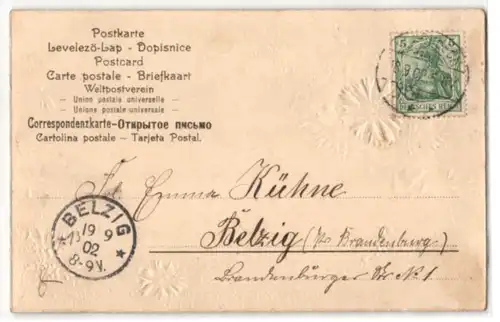 Postkarte
Levelező-Lap - Dopisnice
Postcard
Carte postale - Briefkaart
Weltpostverein
- Union postale universelle -
- Unione postale universale -
Correspondenzkarte-Открытое письмо
Cartolina postale - Tarjeta Postal.
5
DEUTSCHES REICH
Emma Kühne
Belzig (Pr. Brandenburg)
Brandenburger Str. № 1.
* BELZIG *
19 9
02
8-9V.